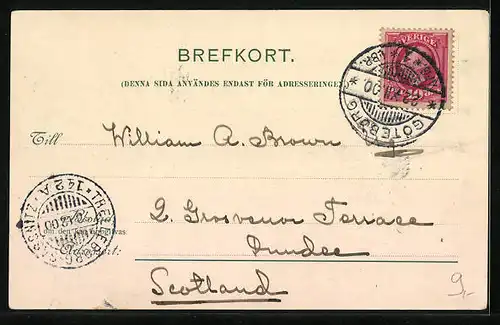 SVERIGE
BREFKORT.
(DENNA SIDA ANVÄNDES ENDAST FÖR ADRESSERINGEN)
GÖTEBORG
22 XII 00
Till William A. Brown
TRELLEBORG SASSNITZ
142 A
2. Grosvenor Terrace
Dundee
Scotland
9,-